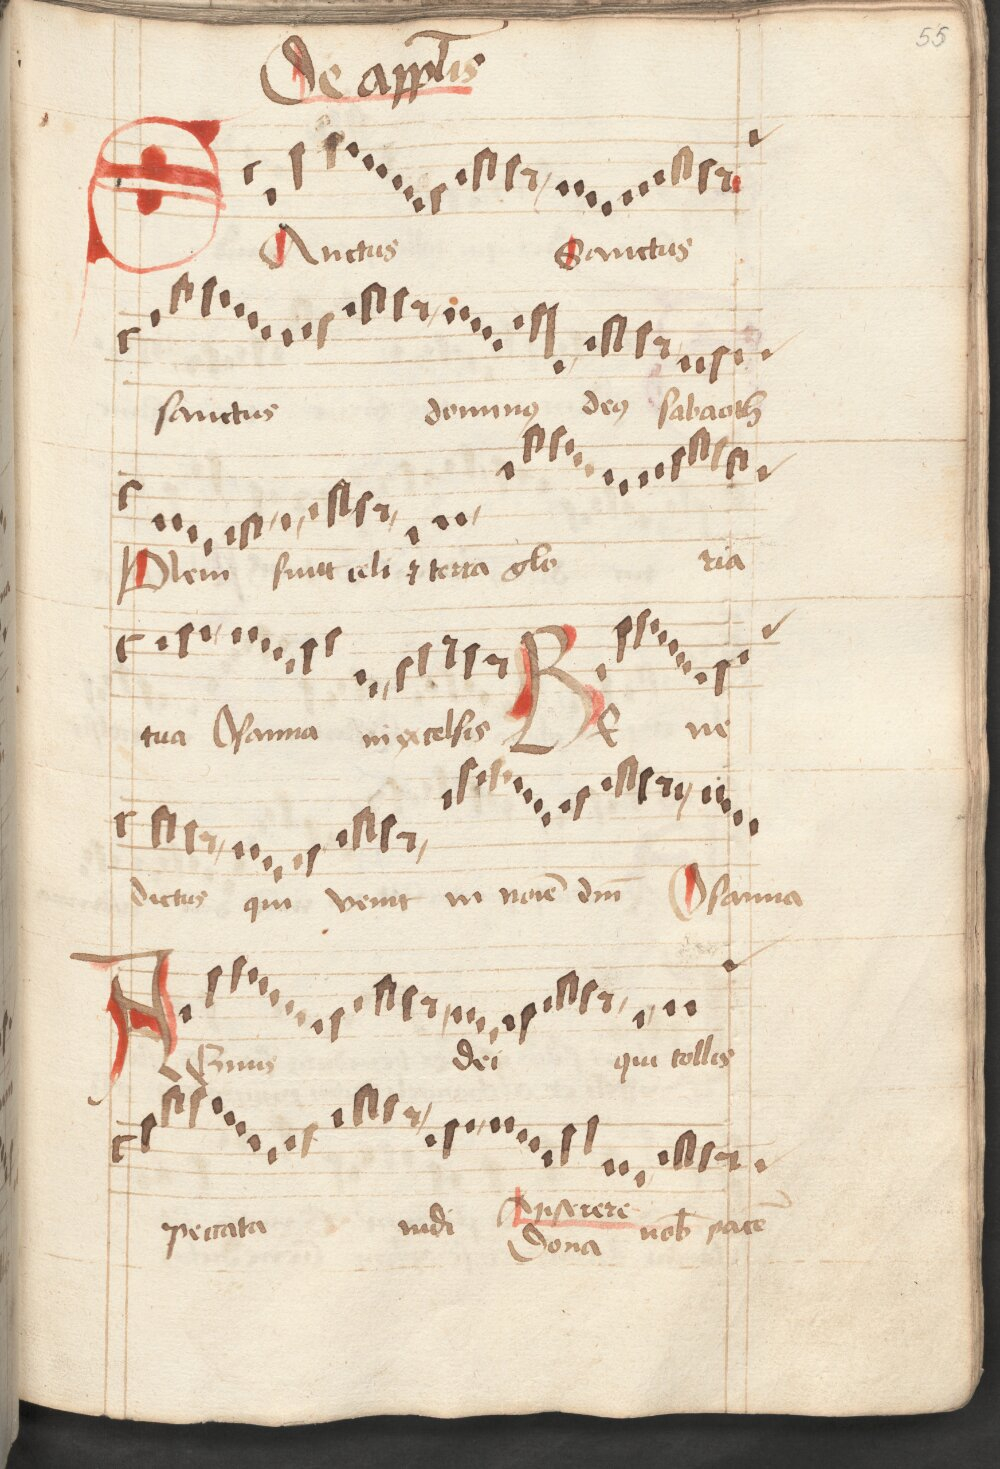 55
De appl̄is
SAnctus Sanctus
sanctus dominꝰ deꝰ sabaoth
Pleni sunt celi ⁊ terra glo ria
tua Osanna in excelsis BE ne
dictus qui venit in noīe dn̄i Osanna
AGnus dei qui tollis
peccata mūdi Miserere nob̄ pacē
Dona